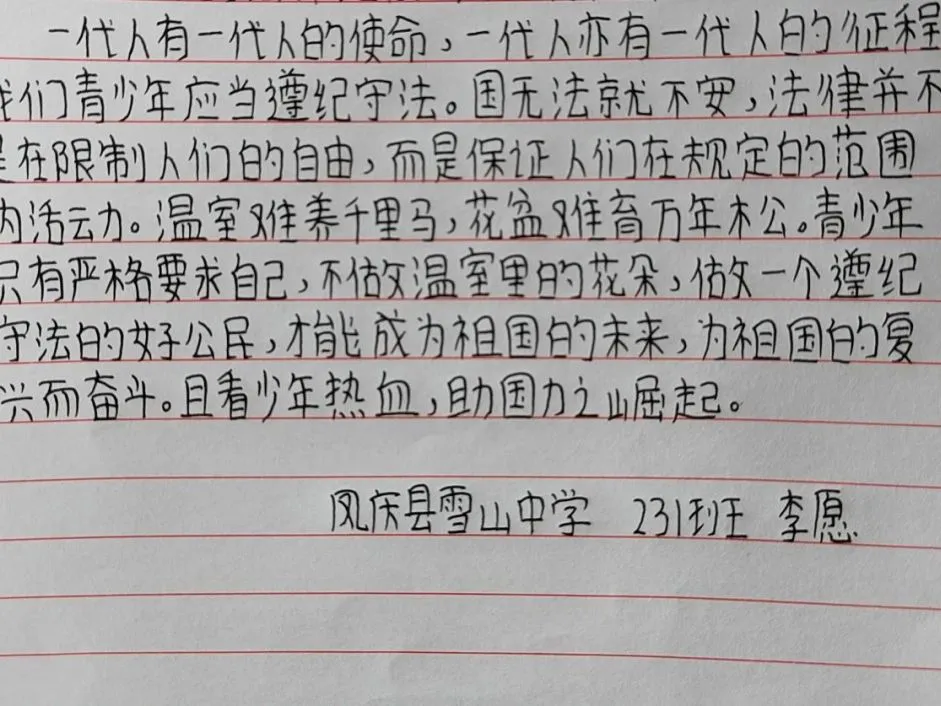 一代人有一代人的使命，一代人亦有一代人的征程
我们青少年应当遵纪守法。国无法就不安，法律并不
是在限制人们的自由，而是保证人们在规定的范围
内活动。温室难养千里马，花盆难育万年松。青少年
只有严格要求自己，不做温室里的花朵，做一个遵纪
守法的好公民，才能成为祖国的未来，为祖国的复
兴而奋斗。且看少年热血，助国力之崛起。
凤庆县雪山中学 231班 李愿